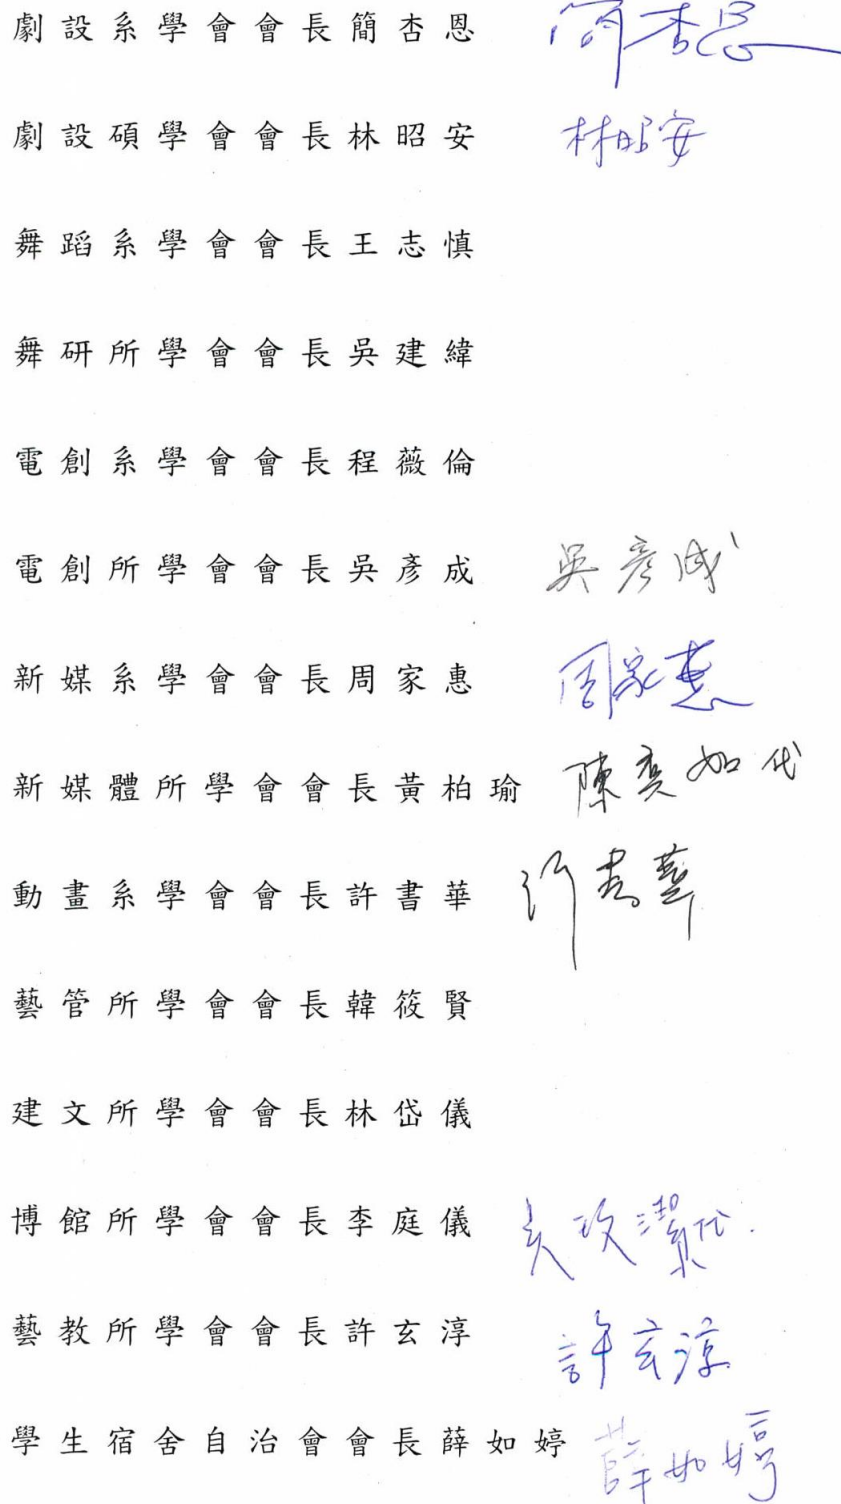 劇設系學會會長簡杏恩 簡杏恩
劇設碩學會會長林昭安 林昭安
舞蹈系學會會長王志慎
舞研所學會會長吳建緯
電創系學會會長程薇倫
電創所學會會長吳彥成 吳彥成
新媒系學會會長周家惠 周家惠
新媒體所學會會長黃柏瑜 陳奕如代
動畫系學會會長許書華 許書華
藝管所學會會長韓筱賢
建文所學會會長林岱儀
博館所學會會長李庭儀 代
藝教所學會會長許玄淳 許玄淳
學生宿舍自治會會長薛如婷 薛如婷